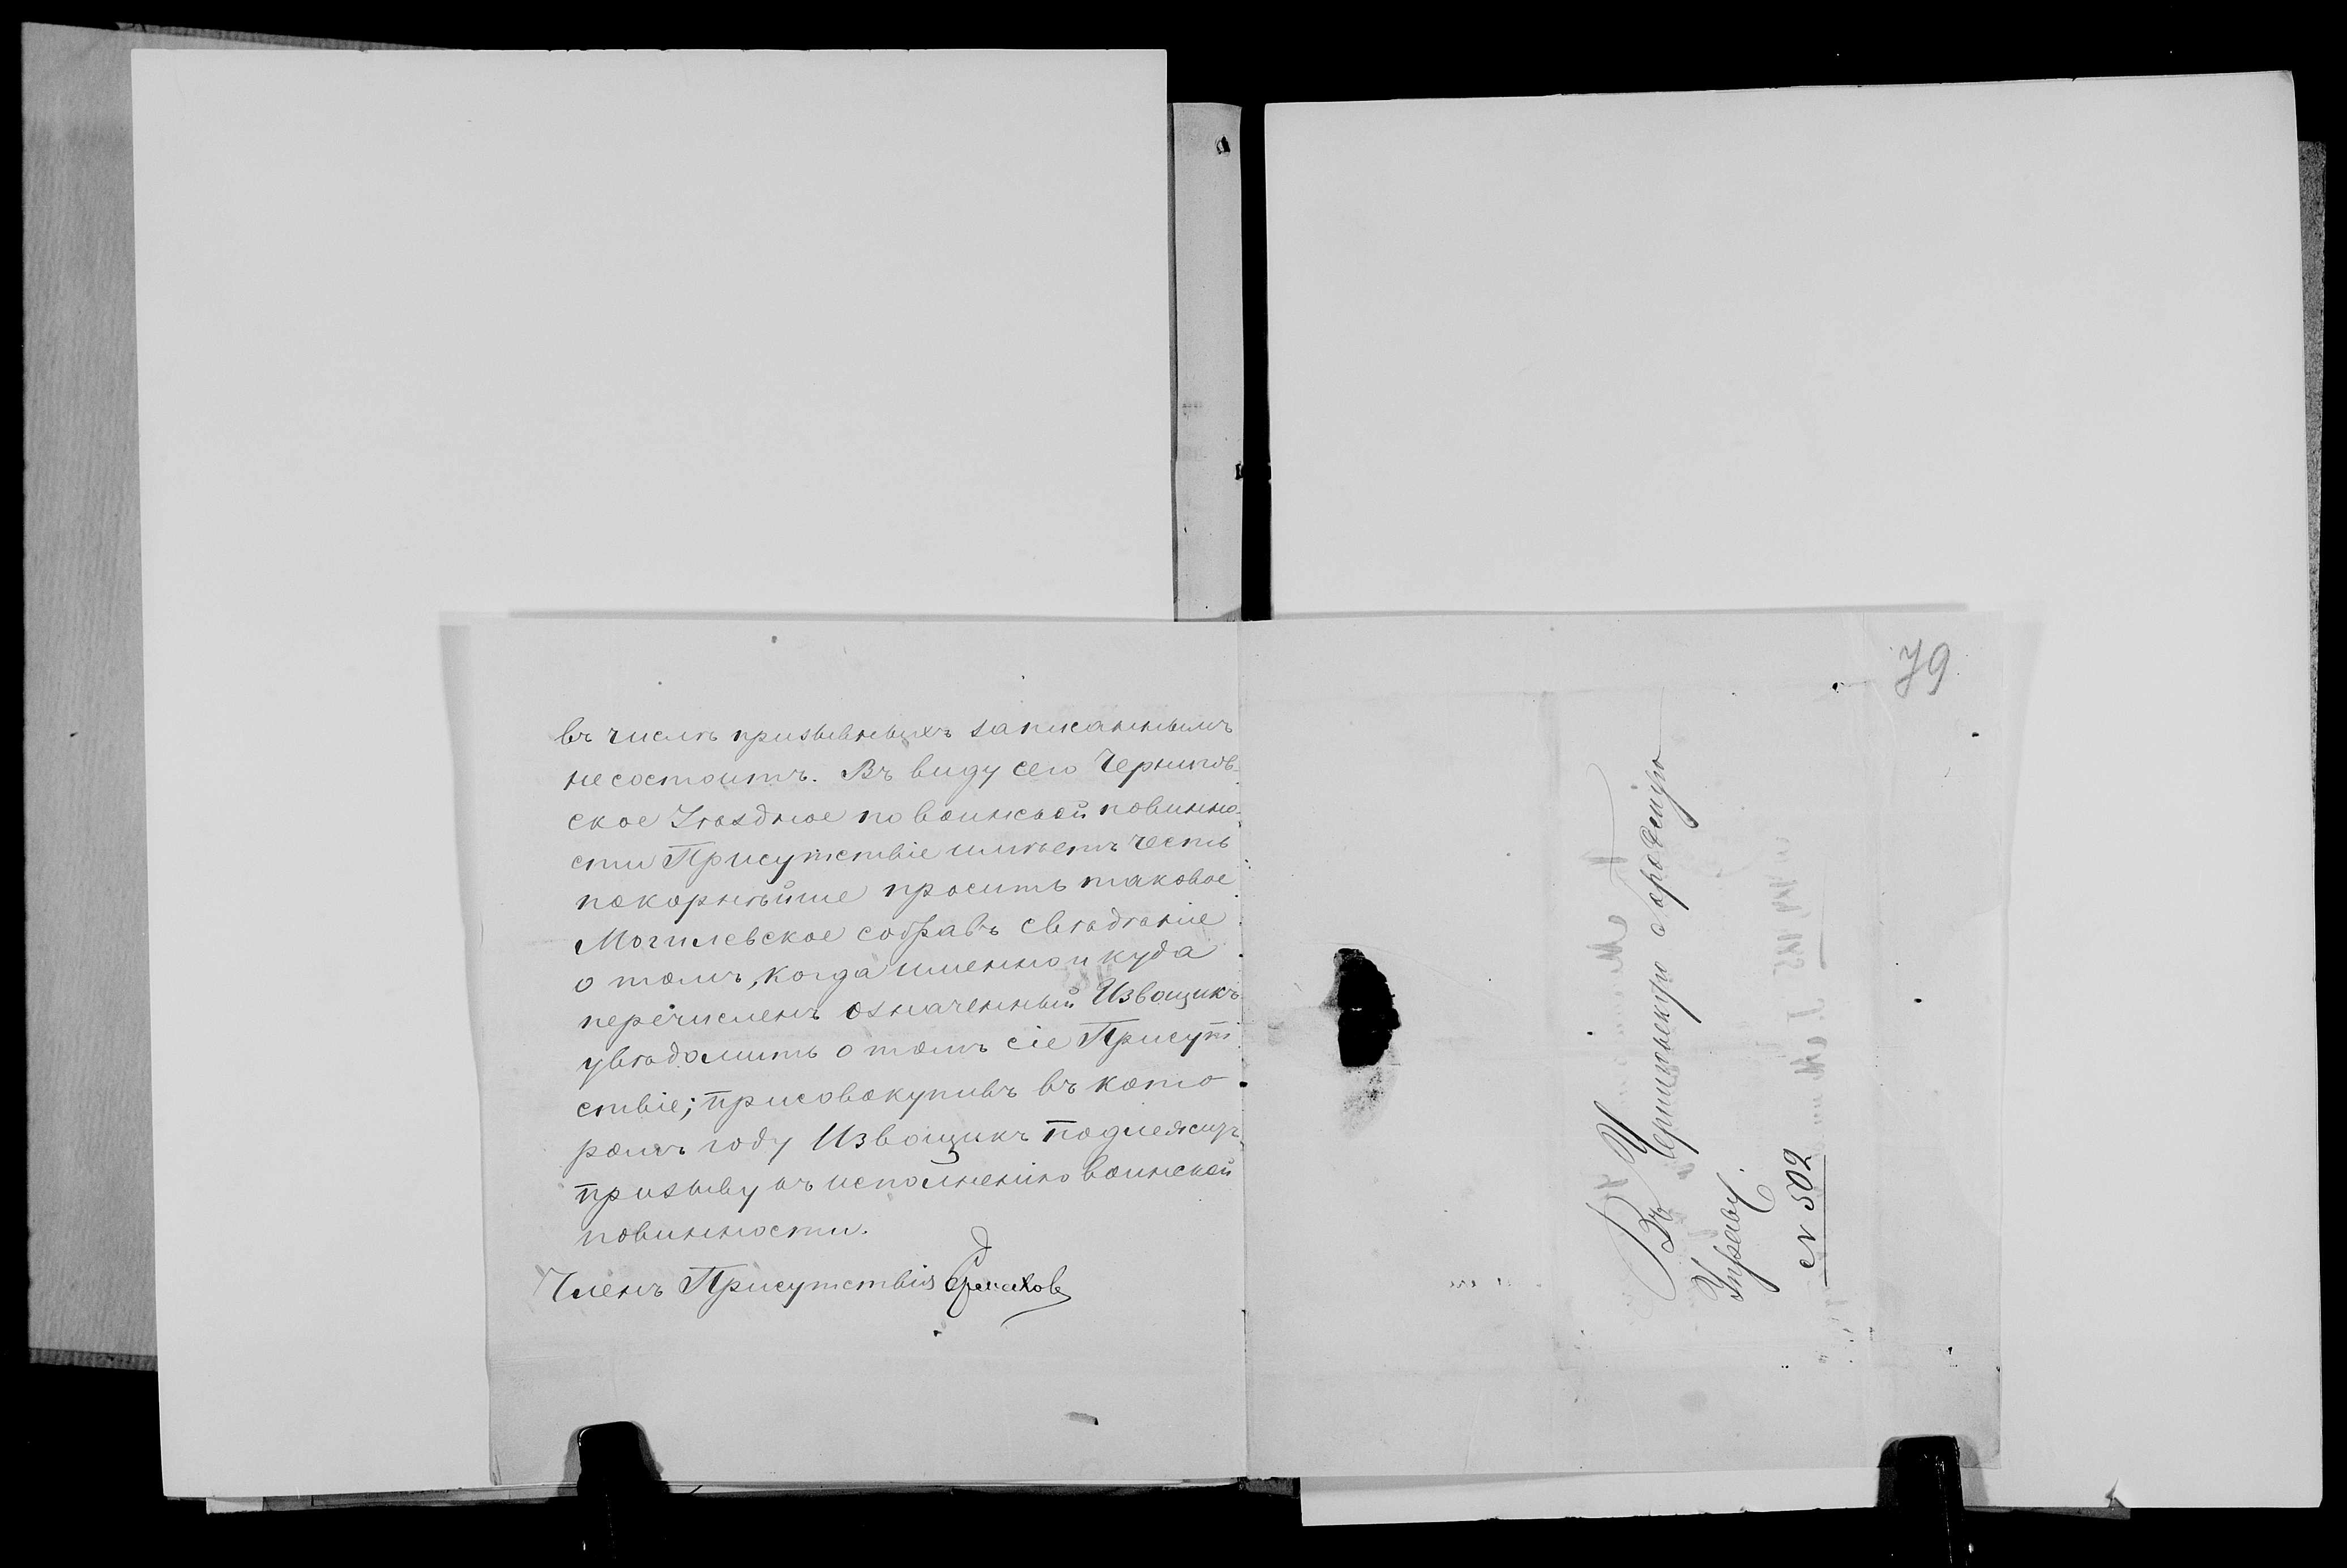 въ числѣ призывныхъ записаннымъ
не состоитъ. Въ виду сего Чериков-
ское Уѣздное по воинской повинно-
сти Присутствіе имѣетъ честь
покорнѣйше просить таковое
Могилевское собравъ свѣдѣніе
о томъ, когда именно и куда
перечисленъ означенный Извощикъ
увѣдомить о томъ сіе Присут
ствіе; присовокупивъ въ кото
ромъ году Извощикъ подлежитъ
призыву къ исполненію воинской
повинности.
Членъ Присутствія
79
Въ Чериковскую Городскую
Управу.
№ 502